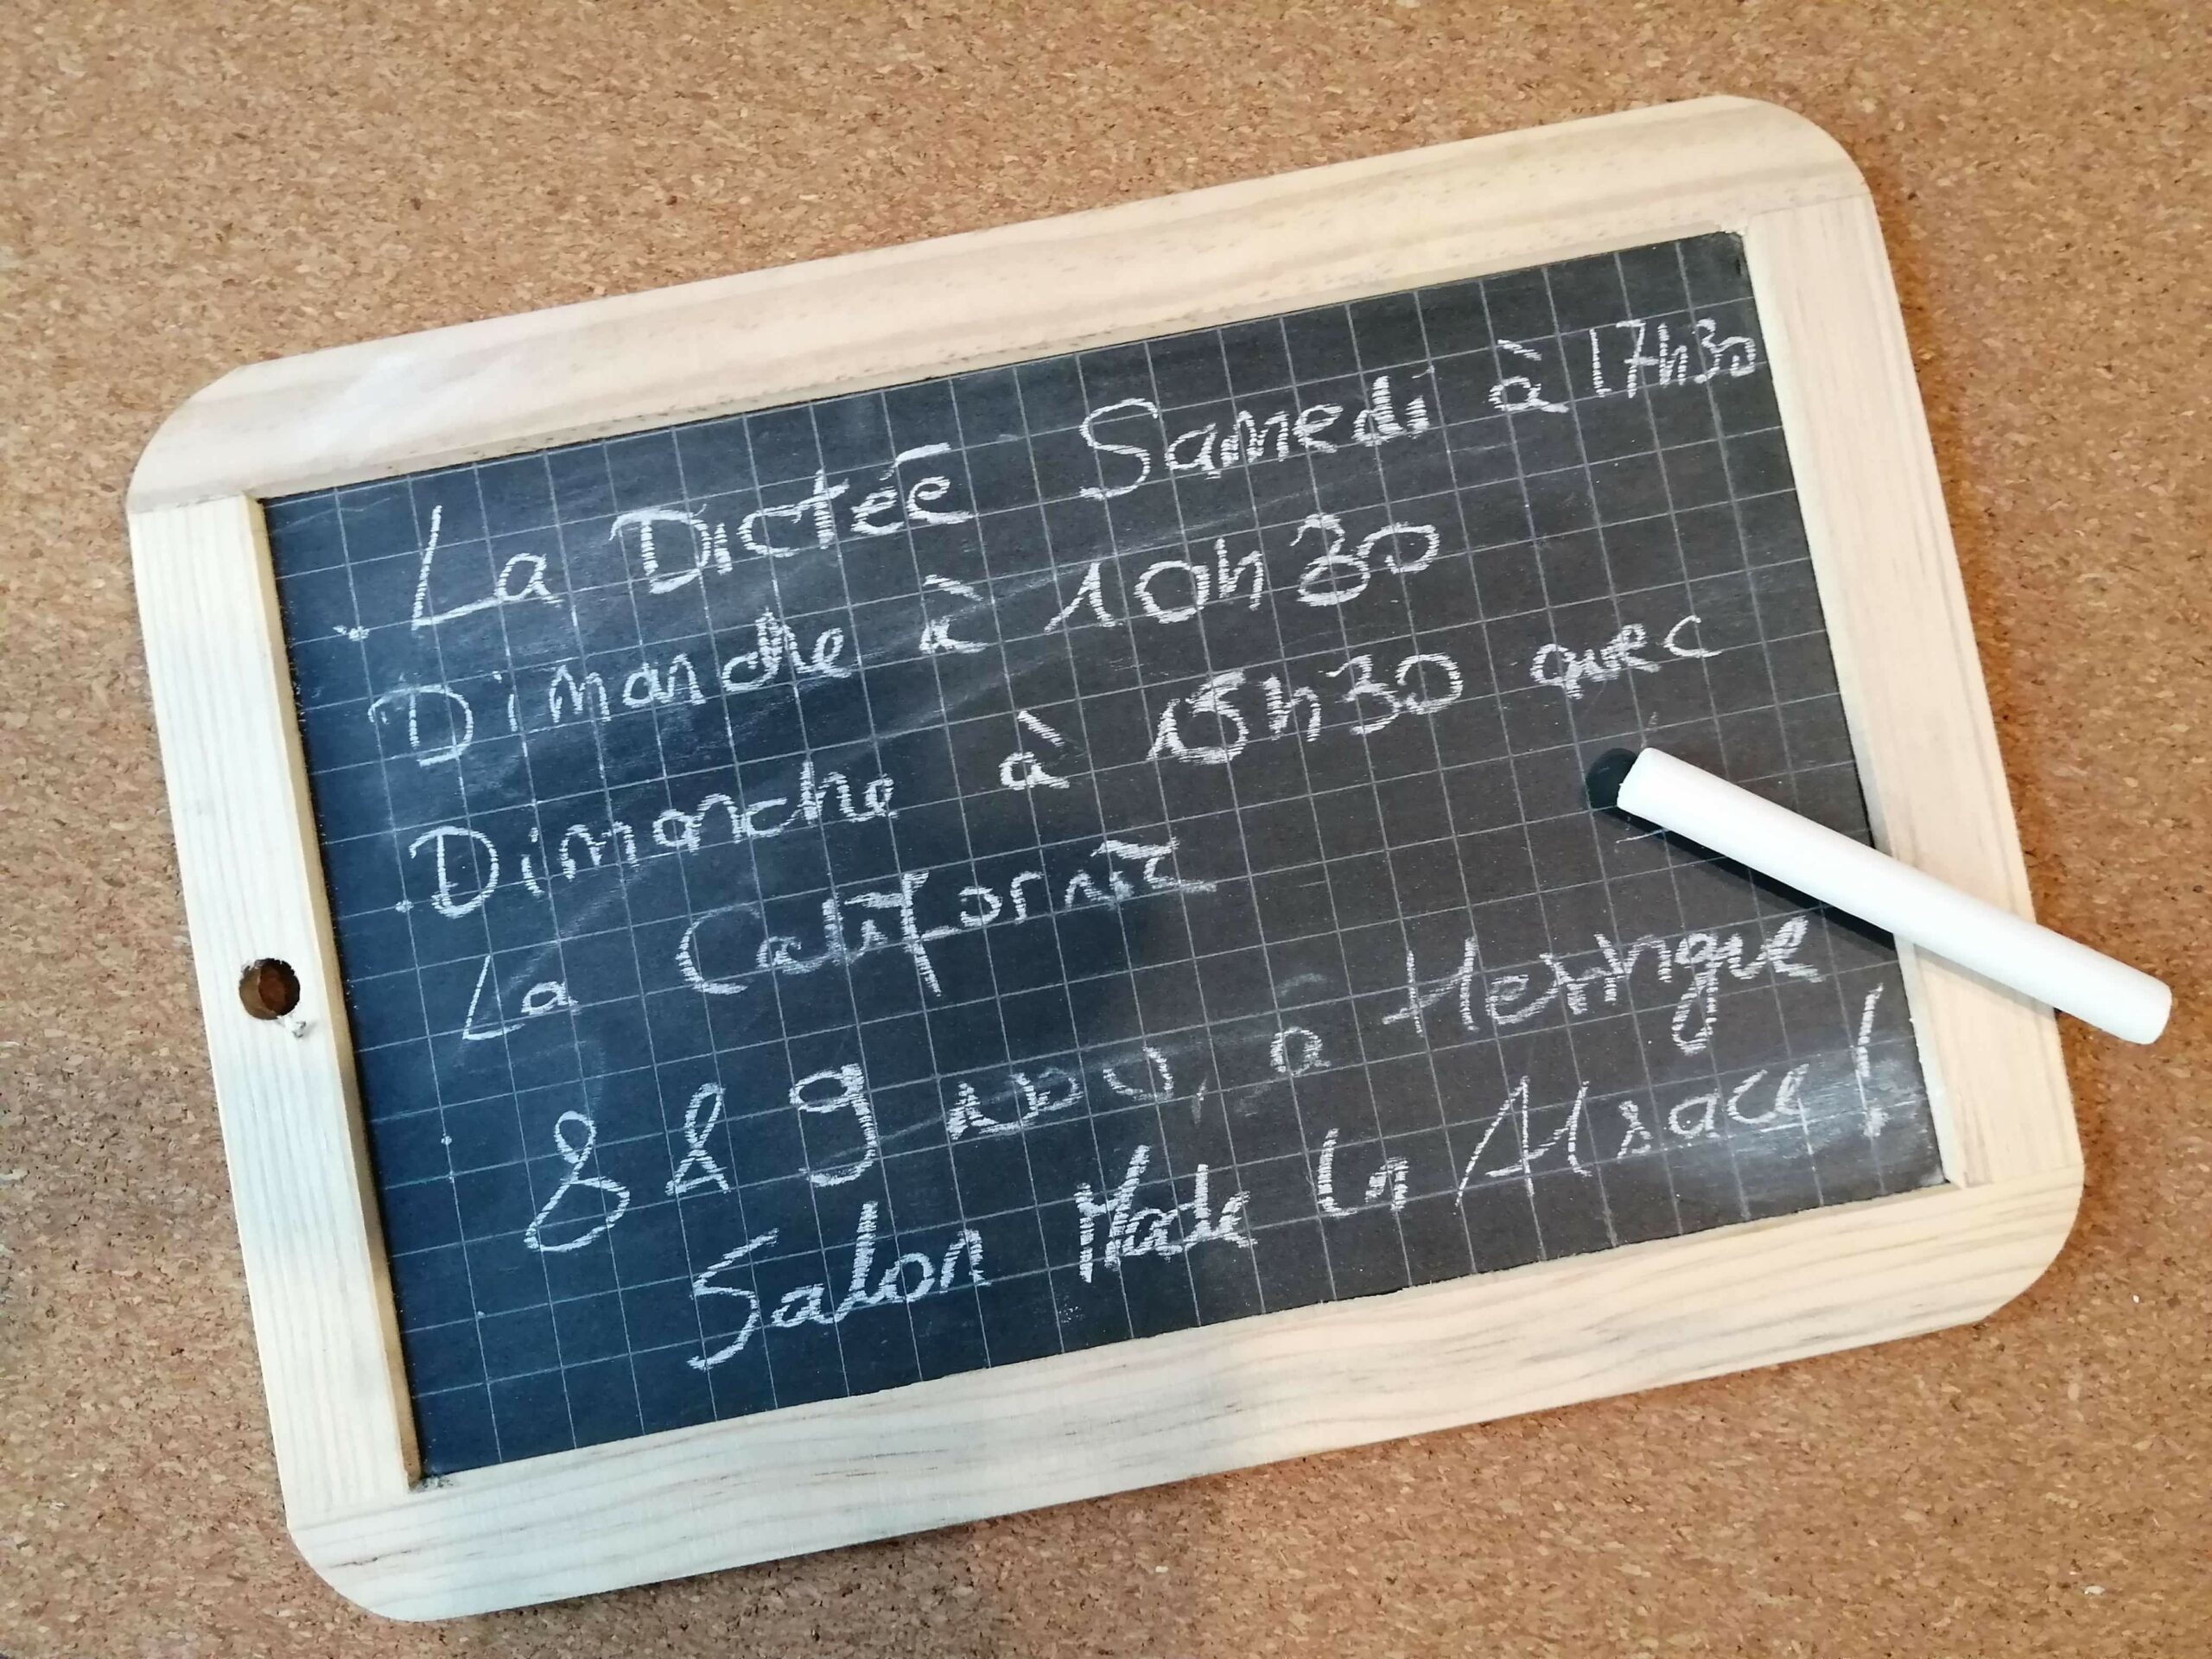 La Dictée Samedi à 17h30
Dimanche à 10h30
Dimanche à 15h30 avec
La Californie
8 & 9 nov, a Heringue
Salon Made In Alsace !